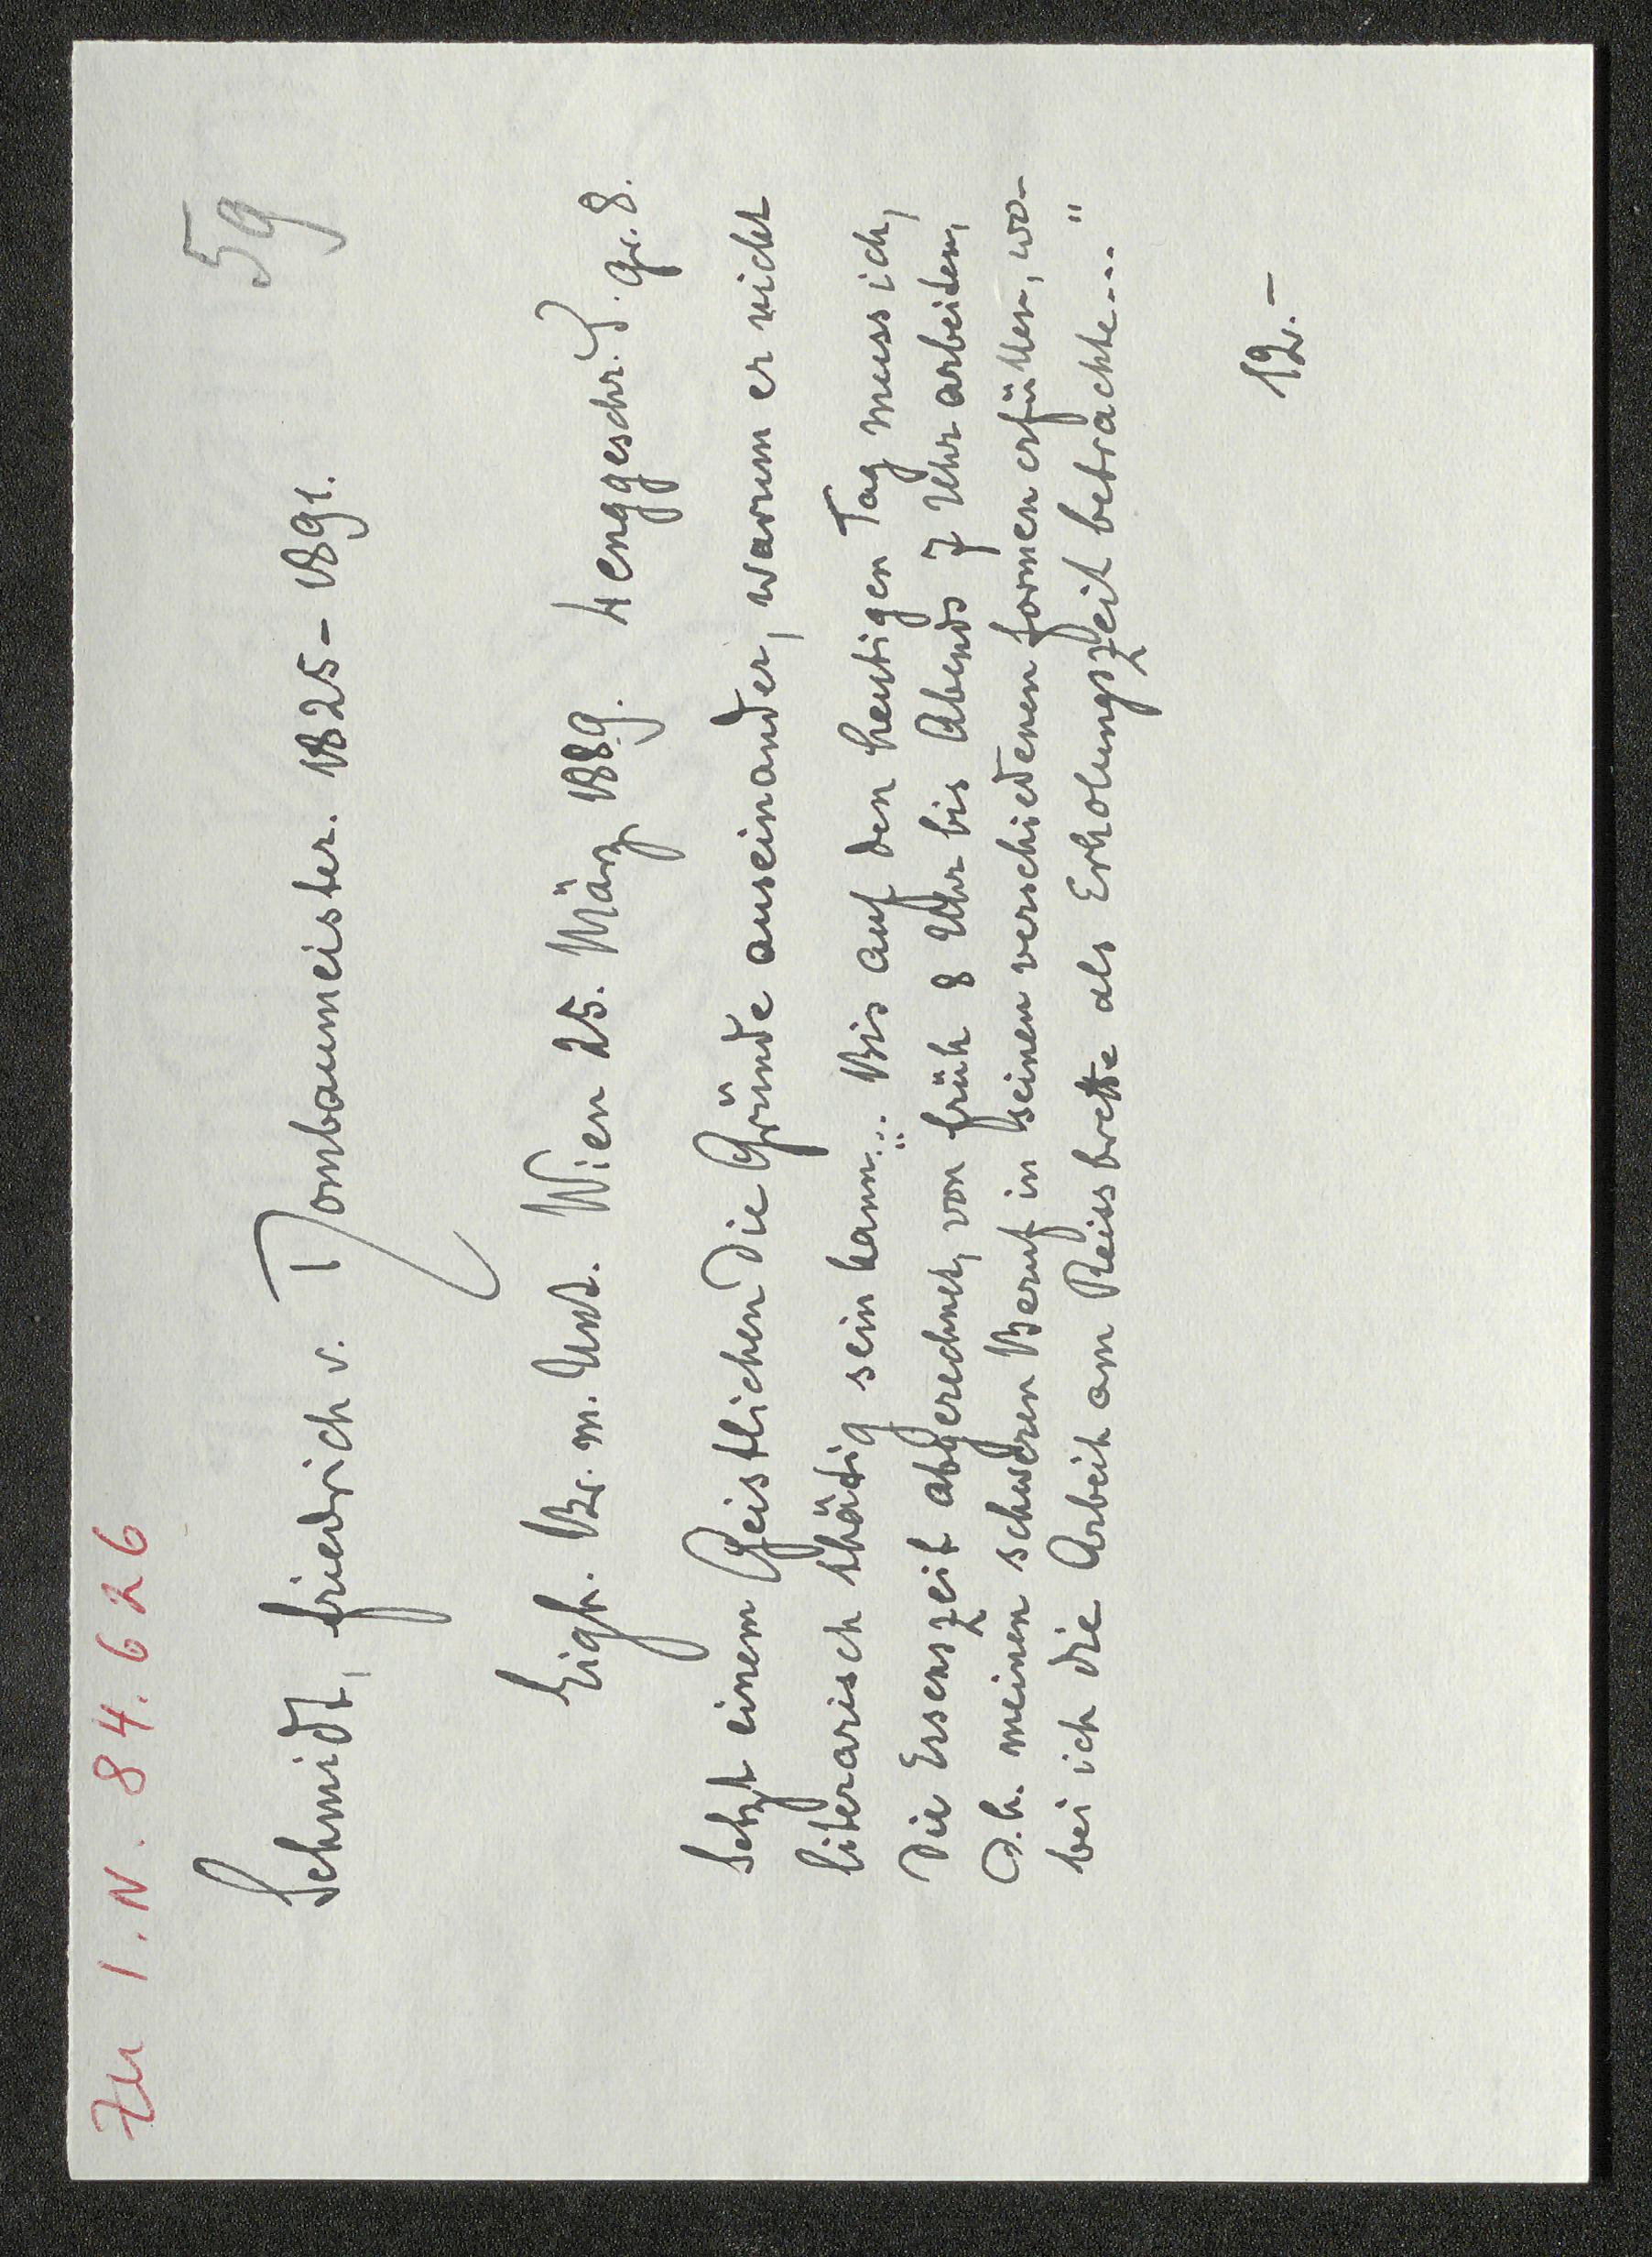 Zu I.N. 84.626
59
Schmidt, Friedrich v. Dombaumeister. 1825-1891.
Eigh. Br. m. Unt. Wien 25. März 1889. 4 enggeschr. S. gr. 8.
Setzt einem Geistlichen die Gründe auseinander, warum er nicht
literarisch thätig sein kann: "... Bis auf den heutigen Tag muss ich,
die Essenszeit abgerechnet, von früh 8 Uhr bis Abends 7 Uhr arbeiten,
d.h. meinen schweren Beruf in seinen verschiedenen Formen erfüllen, wo-
bei ich die Arbeit am Reissbrette als Erholungszeit betrachte...."
12.-